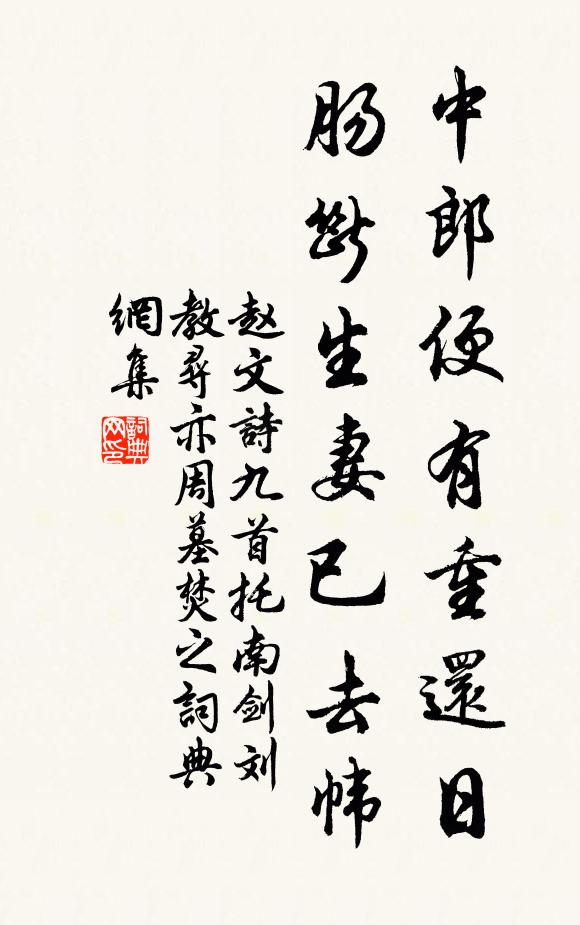 中郎便有重還日
肠斷生妻已去帏
赵文詩九首托南剑刘
教尋亦周墓焚之詞典
網集
詞典網印